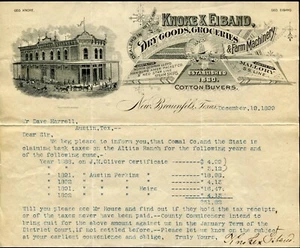 GEO. KNOKE.
GEO. EIBAND.
KNOKE & EIBAND,
DEALERS IN
DRY GOODS, GROCERIES
& Farm Machinery.
MALLORY
S.S. LINE
ESTABLISHED
1880.
COTTON BUYERS.
New Braunfels, Texas, December, 18, 1899
Mr Dave Harrell,
Austin, Tex,--
Dear Sir,
We beg leave to inform you, that Comal Co, and the State is
claiming back taxes on the Altito Ranch for the following years and
of the following sums,-
Year 1885, on J.M. Oliver Certificate
1891, Austin Perkins
1891,
1895, Heirs
Will you please see Mr House and find out if they hold the tax receipts,
or if the taxes never have been paid.--County Commissioners intend to
bring suit for the above amount against us in the January Term of the
District Court, if not settled before.--Please let me know on the subject
at your earliest convenience and oblige, Truly Yours,
Knoke & Eiband